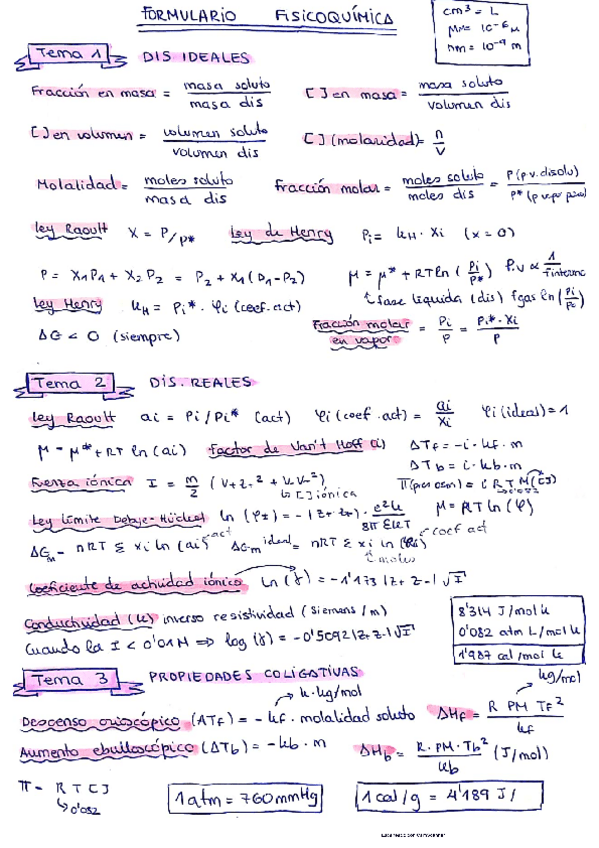 FORMULARIO FISICOQUÍMICA
cm³ = L
μm = 10⁻⁶ μ
nm = 10⁻⁹ m
Tema 1 DIS IDEALES
Fracción en masa = masa soluto / masa dis [ ] en masa = masa soluto / volumen dis
[ ] en volumen = volumen soluto / volumen dis [ ] (molaridad) = n / V
Molalidad = moles soluto / masa dis Fracción molar = moles soluto / moles dis = P (p.v. disolu) / P* (p vapor puro)
Ley Raoult X = P/P* Ley de Henry Pi = kH · Xi (x = 0)
P = X1P1 + X2P2 = P2 + X1(P1 - P2) μ = μ* + RT ln (Pi / P*) P.v ∝ 1 /
Ley Henry kH = Pi* · φi (coef. act) fase liquida (dis) fgas ln (Pi /
ΔG < 0 (siempre) Fracción molar en vapor = Pi / P = Pi* · Xi / P
Tema 2 DIS. REALES
Ley Raoult ai = Pi / Pi* (act) φi (coef. act) = ai / Xi φi (ideal) = 1
μ = μ* + RT ln (ai) Factor de Van't Hoff (i) ΔTf = -i · kf · m
ΔTb = i · kb · m
Fuerza iónica I = m / 2 (V+ Z+² + V- V-²) π (pres osm) = i R T M ([ ])
[ ] iónica 0'082
Ley límite Debye-Hückel ln (φ±) = - (Z+ Z-) · e²k / 8π εkT μ = RT ln (φ)
coef act
ΔGm = nRT Σ xi ln (ai) act ΔGm ideal = nRT Σ xi ln (Xi)
moles
Coeficiente de actividad iónico ln (γ) = -1'173 |Z+ Z-| √I
Conductividad (k) inverso resistividad (siemens / m)
Cuando la I < 0'01 M ⇒ log (γ) = -0'5092 |Z+ Z-| √I
8'314 J/mol k
0'082 atm L/mol k
1'987 cal/mol k
Tema 3 PROPIEDADES COLIGATIVAS
k·kg/mol kg/mol
Descenso crioscópico (ΔTf) = - kf · molalidad soluto ΔHf = R PM Tf² / kf
Aumento ebulloscópico (ΔTb) = - kb · m ΔHb = R · PM · Tb² / kb (J/mol)
π = R T [ ]
0'082
1 atm = 760 mmHg 1 cal/g = 4'189 J/